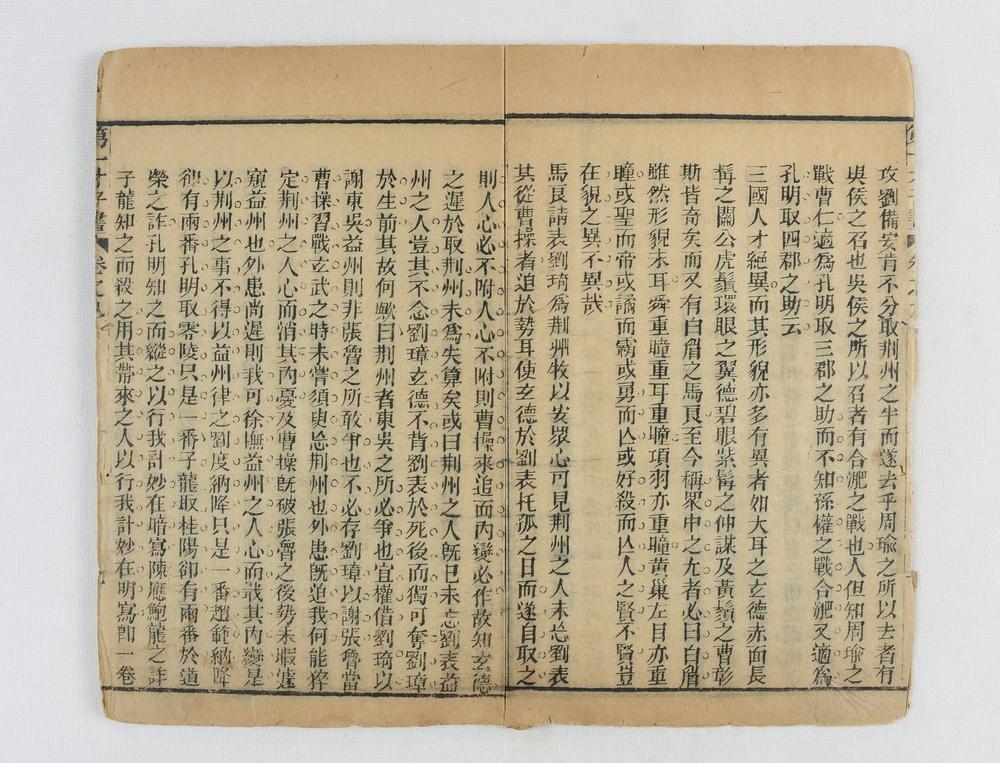 攻劉備安肯不分取荆州之半而遂去乎周瑜之所以去者有
吳侯之召也吳侯之所以召者有合淝之戰也人但知周瑜之
戰曹仁適爲孔明取三郡之助而不知孫權之戰合淝又適爲
孔明取四郡之助云
三國人才絕異而其形貌亦多有異者如大耳之玄德赤面長
髯之關公虎鬚環眼之翼德碧眼紫髯之仲謀及黃鬚之曹彰
斯皆奇矣而又有白眉之馬良至今稱衆中之尤者必曰白眉
雖然形貌末耳舜重瞳重耳重瞳項羽亦重瞳黃巢左目亦重
瞳或聖而帝或譎而霸或勇而亾或奸殺而亾人之賢不賢豈
在貌之異不異哉
馬良請表劉琦爲荆州牧以安衆心可見荆州之人未忘劉表
其從曹操者迫於勢耳使玄德於劉表托孤之日而遂自取之
則人心必不附人心不附則曹操來追而內變必作故知玄德
之遲於取荆州未爲失算矣或曰荆州之人旣已未忘劉表益
州之人豈其不念劉璋玄德不背劉表於死後而獨可奪劉璋
於生前其故何歟曰荆州者東吳之所必爭也宜權借劉琦以
謝東吳益州則非張魯之所敢爭也不必存劉璋以謝張魯當
曹操習戰玄武之時未嘗須臾忘荆州也外患旣迫我何能猝
定荆州之人心而消其內憂及曹操旣破張魯之後勢未暇遽
窺益州也外患尚遲則我可徐撫益州之人心而戢其內變是
以荆州之事不得以益州律之劉度納降只是一番趙範納降
卻有兩番孔明取零陵只是一番子龍取桂陽卻有兩番於道
榮之詐孔明知之而縱之以行我計妙在暗寫陳應鮑龍之詐
子龍知之而殺之用其帶來之人以行我計妙在明寫卽一卷
第一才子書
卷之九